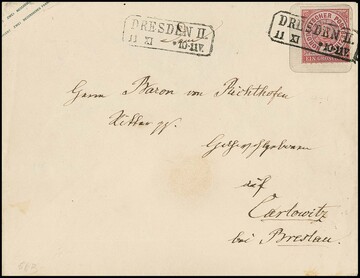 DRESDEN II.
11 XI 10-11V.
DRESDEN II.
11 XI 10-11V.
Herrn Baron von Richthofen
Ritter pp.
auf
Carlowitz
bei Breslau.